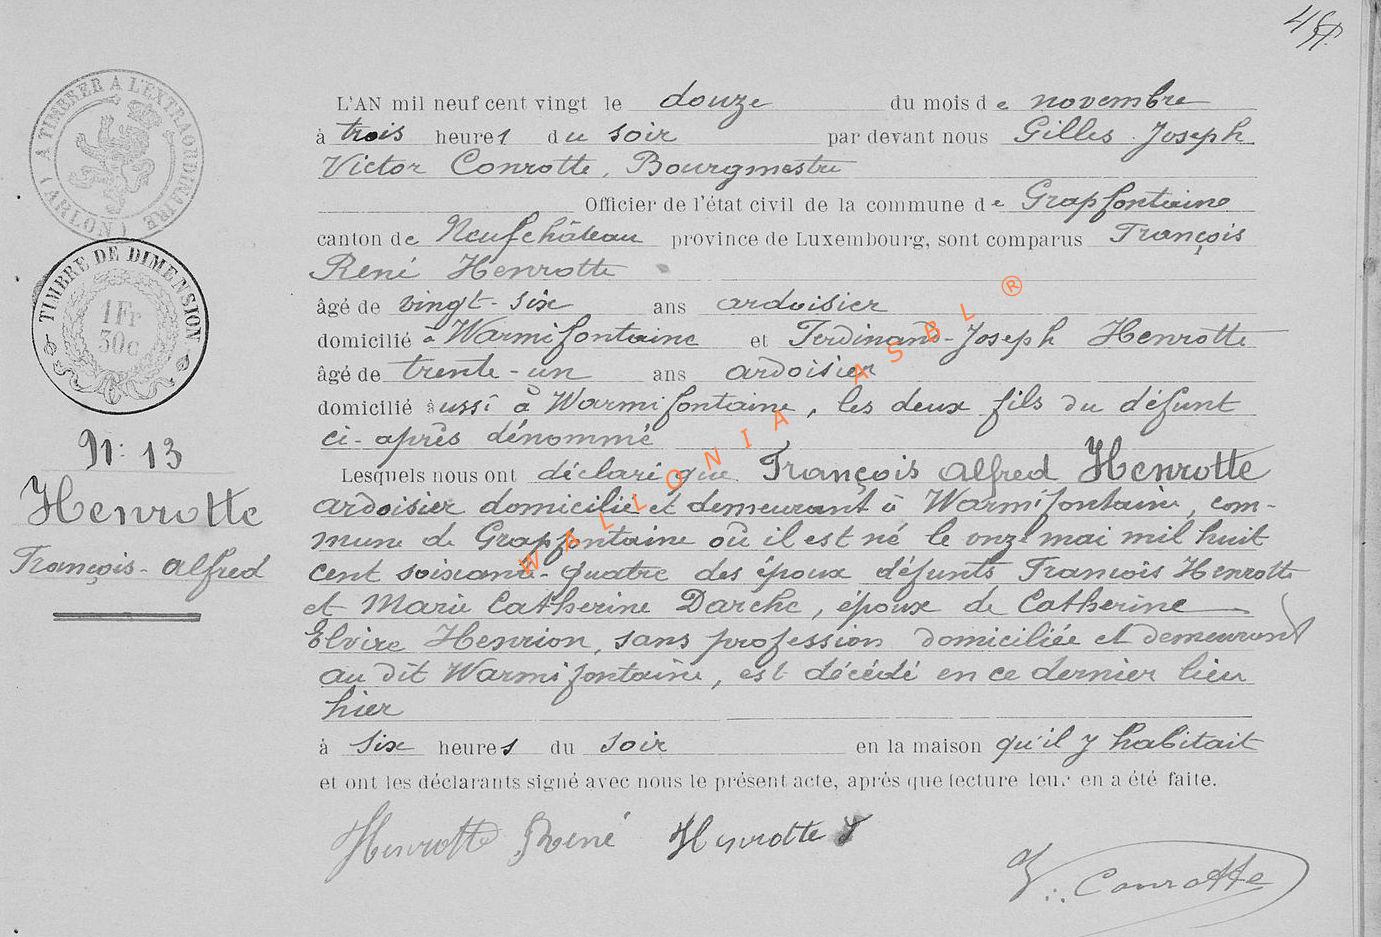 L'AN mil neuf cent vingt le douze du mois de novembre
à trois heures du soir par devant nous Gilles Joseph
Victor Conrotte, Bourgmestre
Officier de l'état civil de la commune de Grapfontaine
canton de Neufchâteau province de Luxembourg, sont comparus François
René Henrotte
âgé de vingt-six ans ardoisier
domicilié à Warmifontaine et Ferdinand-Joseph Henrotte
âgé de trente-un ans ardoisier
domicilié aussi à Warmifontaine, les deux fils du défunt
ci-après dénommé
Lesquels nous ont déclaré que François Alfred Henrotte
ardoisier domicilié et demeurant à Warmifontaine, com-
mune de Grapfontaine où il est né le onze mai mil huit
cent soixante-quatre des époux défunts François Henrotte
et Marie Catherine Darche, époux de Catherine
Elvire Henrion, sans profession domiciliée et demeurant
au dit Warmifontaine, est décédé en ce dernier lieu
hier
à six heures du soir en la maison qu'il y habitait
et ont les déclarants signé avec nous le présent acte, après que lecture leur en a été faite.
Henrotte René Henrotte J
V. Conrotte
A TIMBRER A L'EXTRAORDINAIRE
(ARLON)
TIMBRE DE DIMENSION
1Fr
30c
N: 13
Henrotte
François-Alfred
WALLONIA ASBL ®